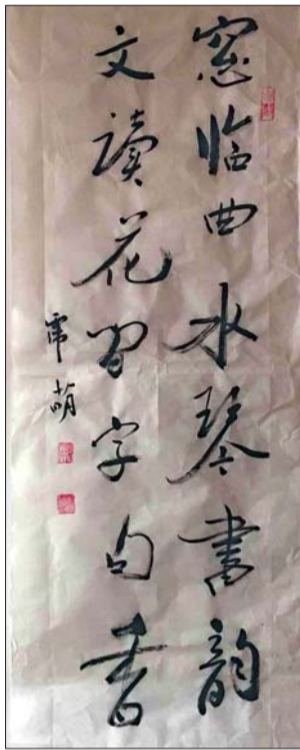 窓臨曲水琴書韵
文讀花間字句香
萌